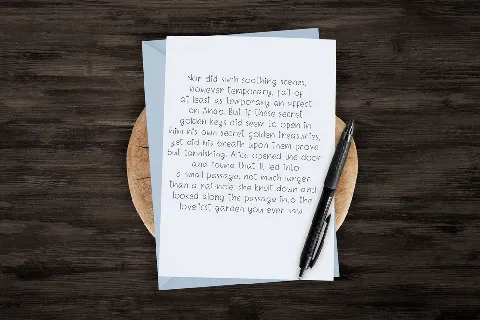 Nor did such soothing scenes,
however temporary, fail of
at least as temporary an effect
on Ahab. But if these secret
golden keys did seem to open in
him his own secret golden treasuries,
yet did his breath upon them prove
but tarnishing. Alice opened the door
and found that it led into
a small passage, not much larger
than a rat-hole: she knelt down and
looked along the passage into the
loveliest garden you ever saw.